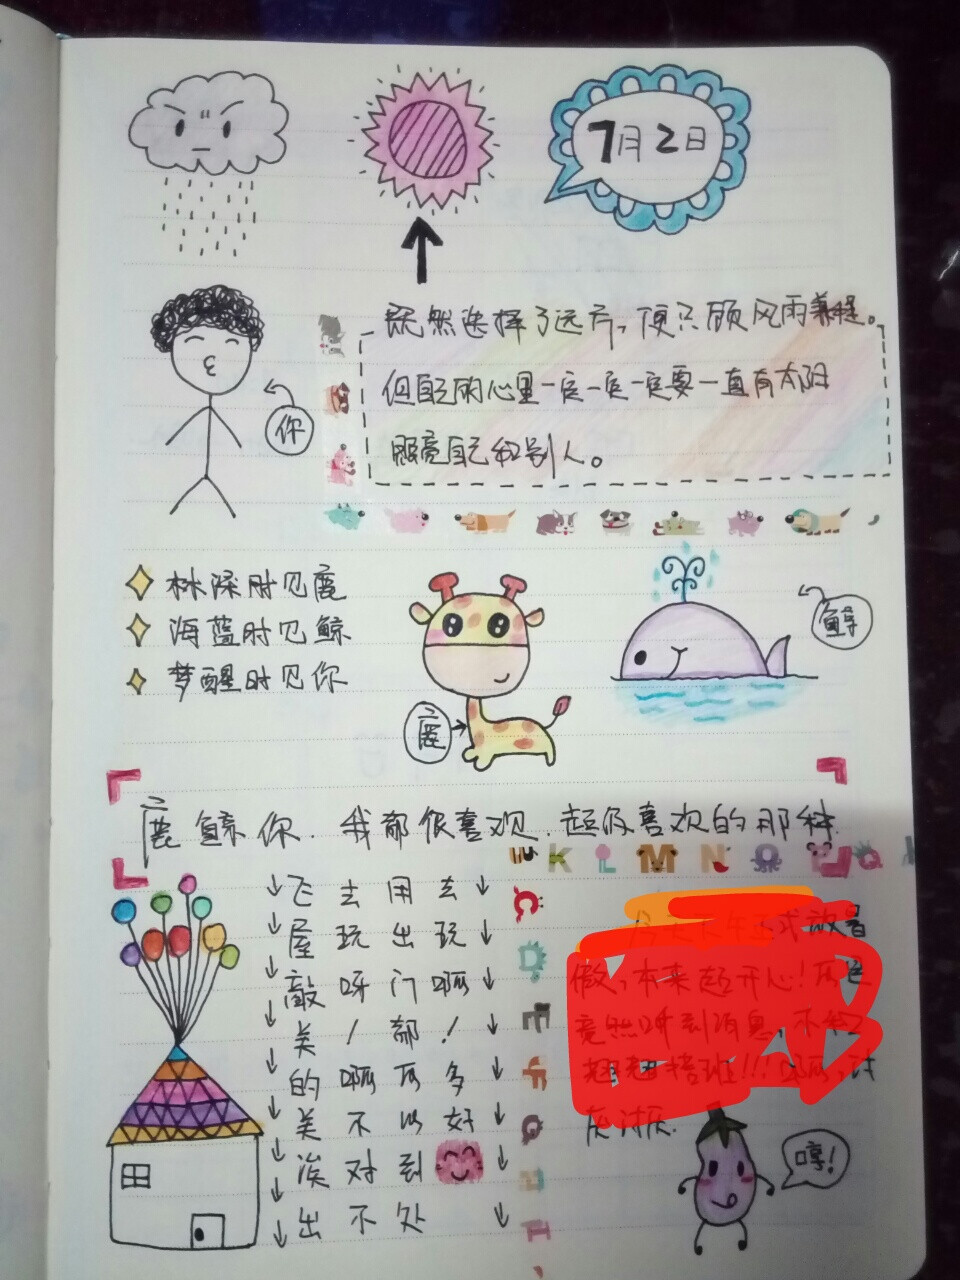 7月2日
既然选择了远方,便只顾风雨兼程。
但自己的心里一定一定一定要一直有太阳
照亮自己和别人。
你
林深时见鹿
海蓝时见鲸
梦醒时见你
鲸
鹿
鹿 鲸 你. 我都很喜欢. 超级喜欢的那种.
K L M N O P Q
飞 去 用 去
屋 玩 出 玩
敲 呀 门 啊
美 ! 部 !
的 啊 可 多
美 不 以 好
对 到
出 不 处
C D E F G
正式放暑
假,本来超开心!
竟然听到消息,不
班!!! 啊,讨
厌讨厌.
哼!